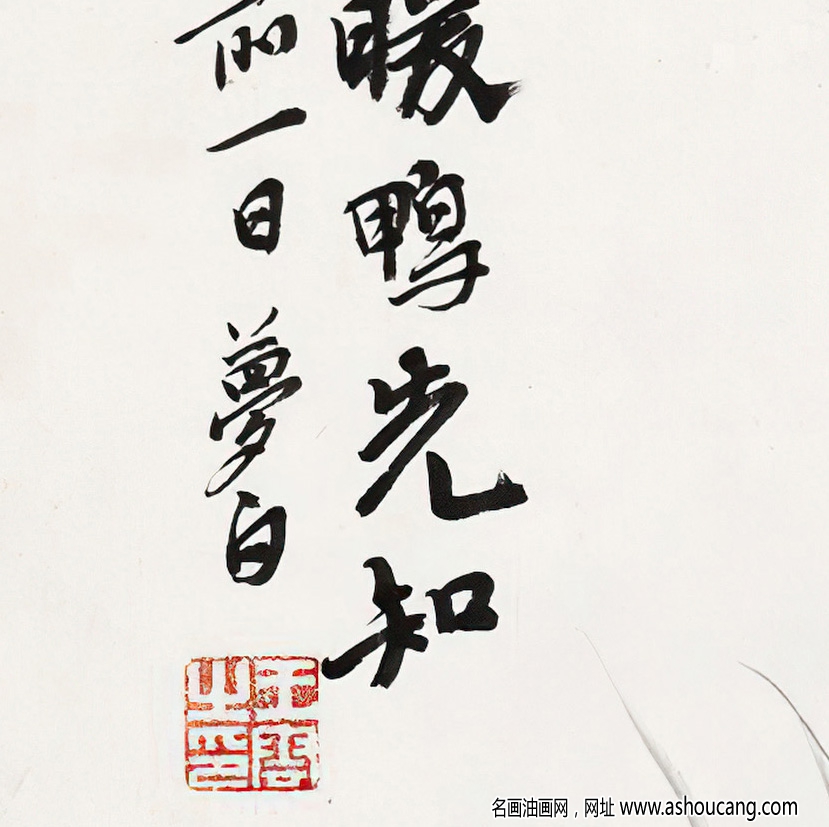 暖鴨先知
前一日 夢白
王雲之印
名画油画网，网址 www.ashoucang.com